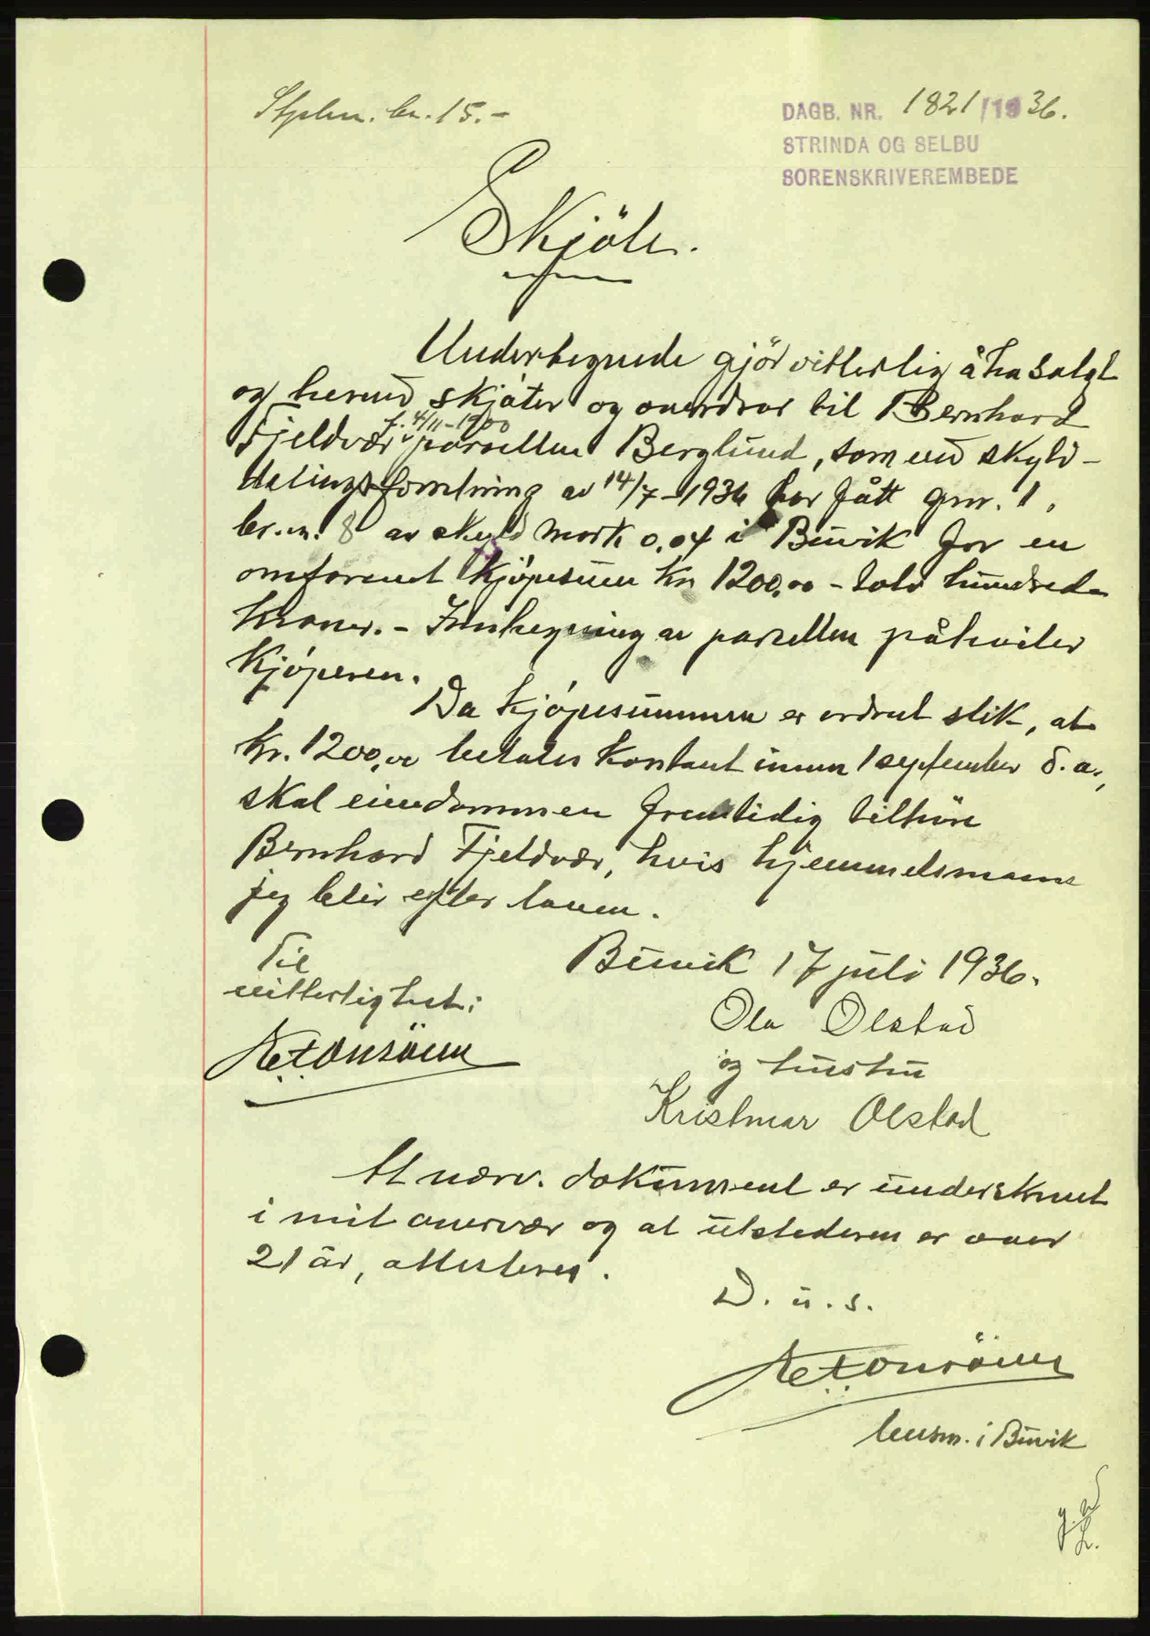 Stplm. kr. 15.-
DAGB. NR. 1821/1936.
STRINDA OG SELBU
SORENSKRIVEREMBEDE
Skjöte.
Undertegnede gjör vitterlig å ha solgt
og herved skjöter og overdrar til Bernhard
f. 4/11-1900
Fjeldvær parsellen Berglund, som ved skyld-
delingsforretning av 14/7-1936 har fått gnr. 1,
br.nr. 8 av skyld mark 0,04 i Buvik for en
omforenet kjøpesum kr 1200,00 - tolv hundrede
kroner. - Innhegning av parsellen påhviler
kjøperen.
Da kjøpesummen er ordnet slik, at
kr. 1200,00 betales kontant innen 1 september d.a.,
skal eiendommen fremtidig tilhöre
Bernhard Fjeldvær, hvis hjemmelsmann
jeg blir efter loven.
Til
vitterlighet:
Buvik 17 juli 1936.
Ola Olstad
og hustru
Kristmar Olstad
At nærv. dokument er underskrevet
i mit overvær og at utstederen er over
21 år, attesteres.
D. u. s.
lensm. i Buvik